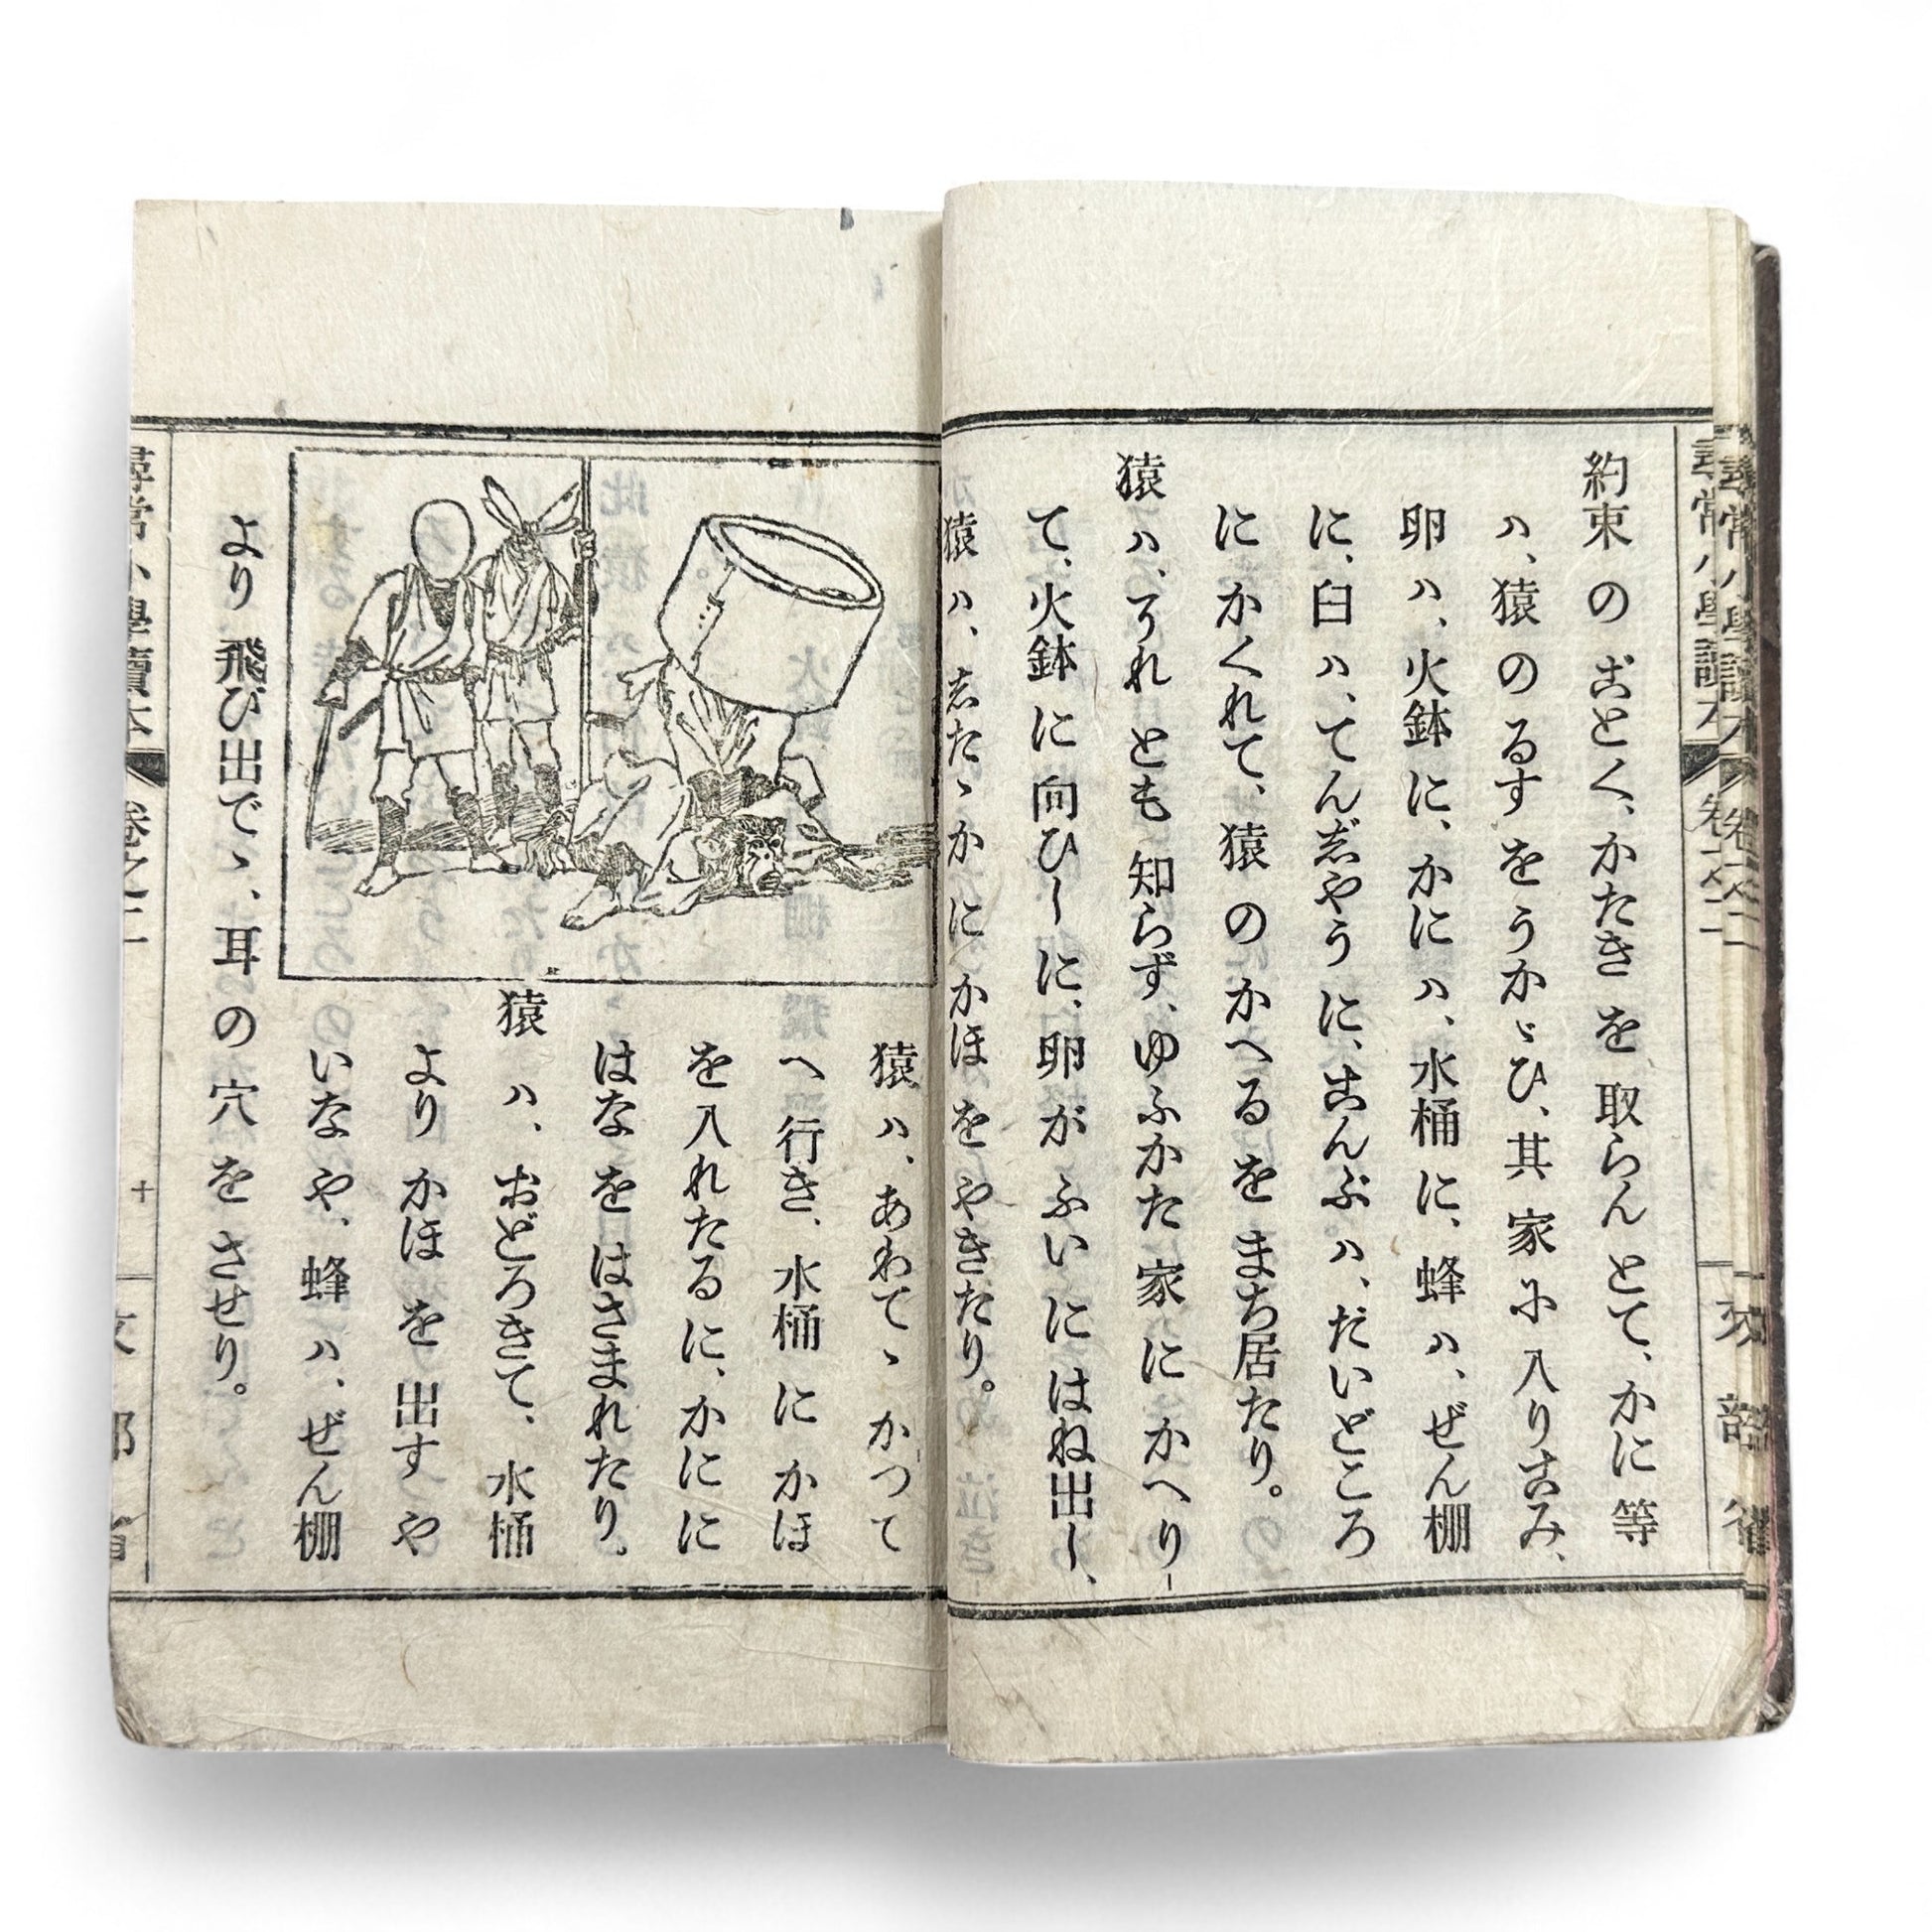 約束のごとく、かたきを取らんとて、かに等
ハ、猿のるすをうかゞひ、其家に入りこみ、
卵ハ、火鉢に、かにハ、水桶に、蜂ハ、ぜん棚
に、臼ハ、てんじやうに、こんぶハ、だいどころ
にかくれて、猿のかへるをまち居たり。
猿ハ、それとも知らず、ゆふかた家にかへり
て、火鉢に向ひしに、卵がふいにはね出し、
猿ハ、したゝかにかほをやきたり。
猿ハ、あわてゝかつて
へ行き、水桶にかほ
を入れたるに、かにに
はなをはさまれたり。
猿ハ、おどろきて、水桶
よりかほを出すや
いなや、蜂ハ、ぜん棚
より飛び出でゝ、耳の穴をさせり。
尋常小學讀本
卷之二
十
文部省